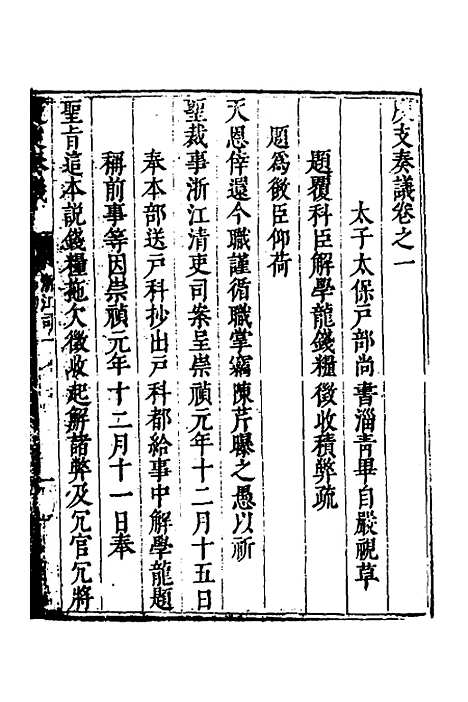 度支奏議卷之一
太子太保戶部尚書淄青畢自嚴視草
題覆科臣解學龍錢糧徵收積弊疏
題為微臣仰荷
天恩倖還今職謹循職掌竊陳芹曝之愚以祈
聖裁事浙江清吏司案呈崇禎元年十二月十五日
奉本部送戶科抄出戶科都給事中解學龍題
稱前事等因崇禎元年十二月十一日奉
聖旨這本說錢糧拖欠徵收起解諸弊及冗官冗將
浙江司一